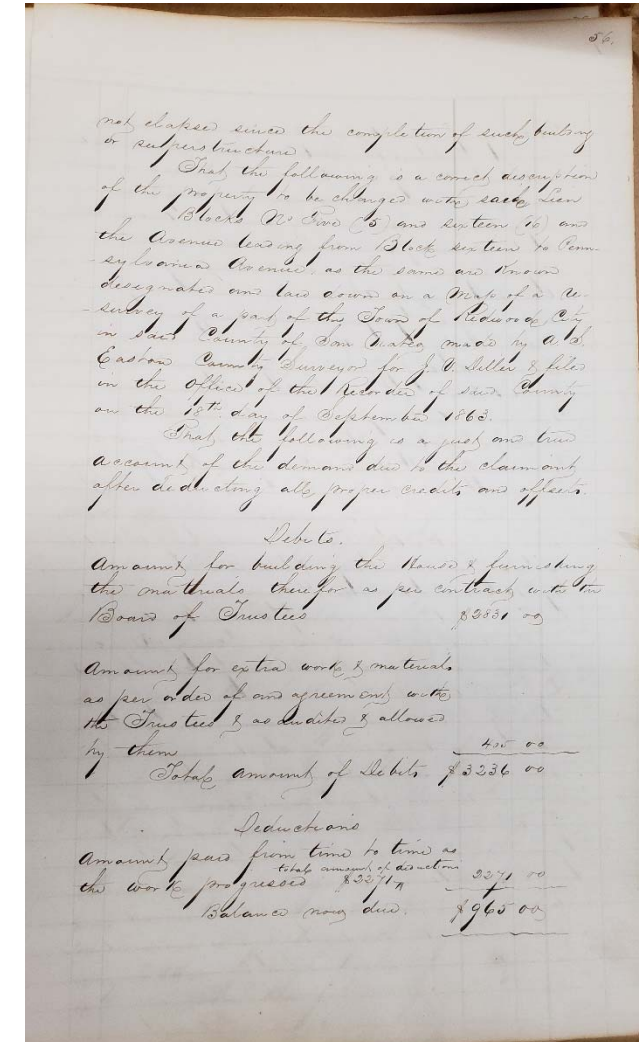 56.
not elapsed since the completion of such building
or superstructure
That the following is a correct description
of the property to be charged with said Lien
Blocks No Five (5) and sixteen (16) and
the Avenue leading from Block sixteen to Penn-
-sylvania Avenue as the same are Known
designated and laid down on a Map of a re-
-survey of a part of the Town of Redwood City
in said County of San Mateo made by A. S.
Easton County Surveyor for J. V. Diller & filed
in the Office of the Recorder of said County
on the 18th day of September 1863.
That the following is a just and true
account of the demand due to the claimant
after deducting all proper credits and offsets.
Debits.
Amount for building the House & furnishing
the materials therefor as per contract with the
Board of Trustees $2831 00
Amount for extra work & materials
as per order of and agreement with
the Trustees & as audited & allowed
by them 405 00
Total amount of Debits $3236 00
Deductions
Amount paid from time to time as
total amount of deductions
the work progressed $2271 2271 00
Balance now due. $965 00